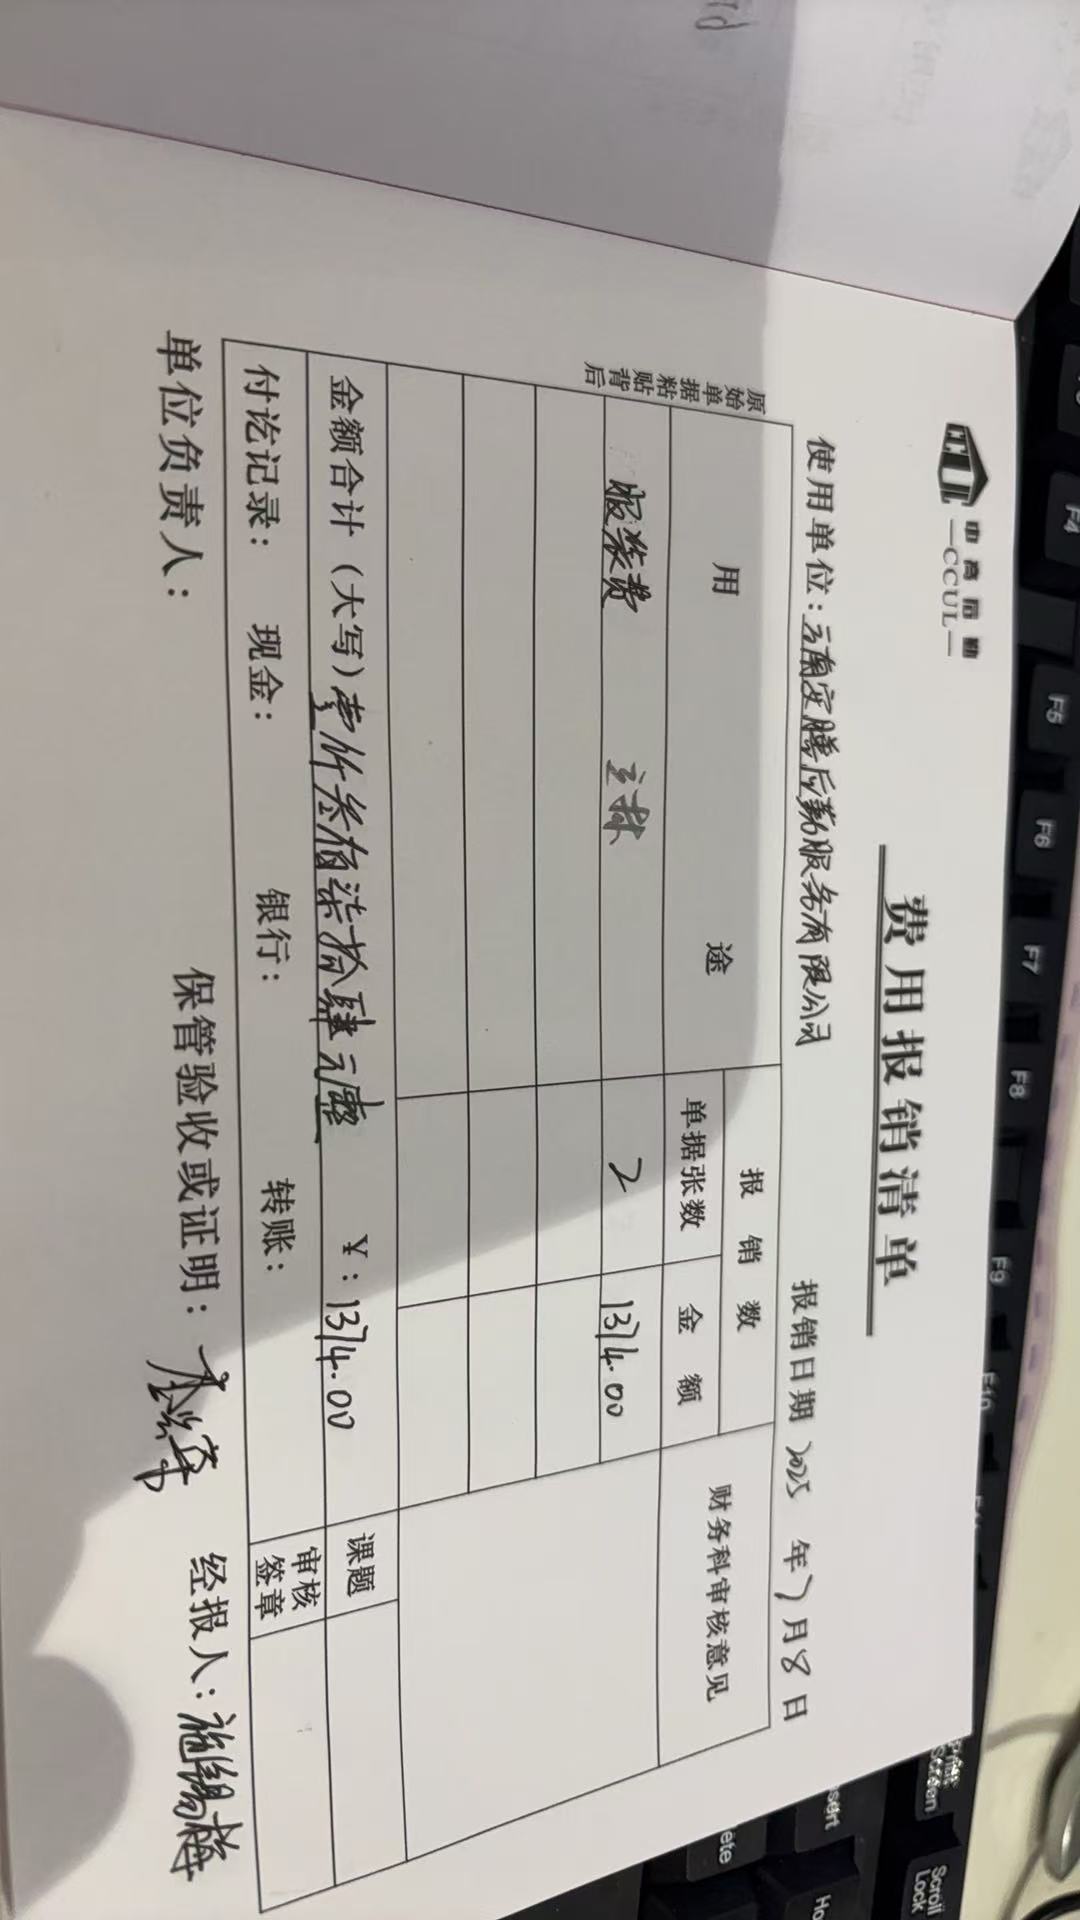 中高后勤
—CCUL—
费用报销清单
使用单位：云南安腾后勤服务有限公司 报销日期 2025 年 7 月 8 日
原始单据粘贴背后
用 途 报销数 财务科审核意见
单据张数 金额
服装费 2 1374.00
金额合计（大写）壹仟叁佰柒拾肆元整 ￥：1374.00 课题
付讫记录： 现金： 银行： 转账： 审核签章
单位负责人： 保管验收或证明： 经报人：施绍梅
F4
F5
F6
F7
F8
F9
F10
Screen
Scroll Lock